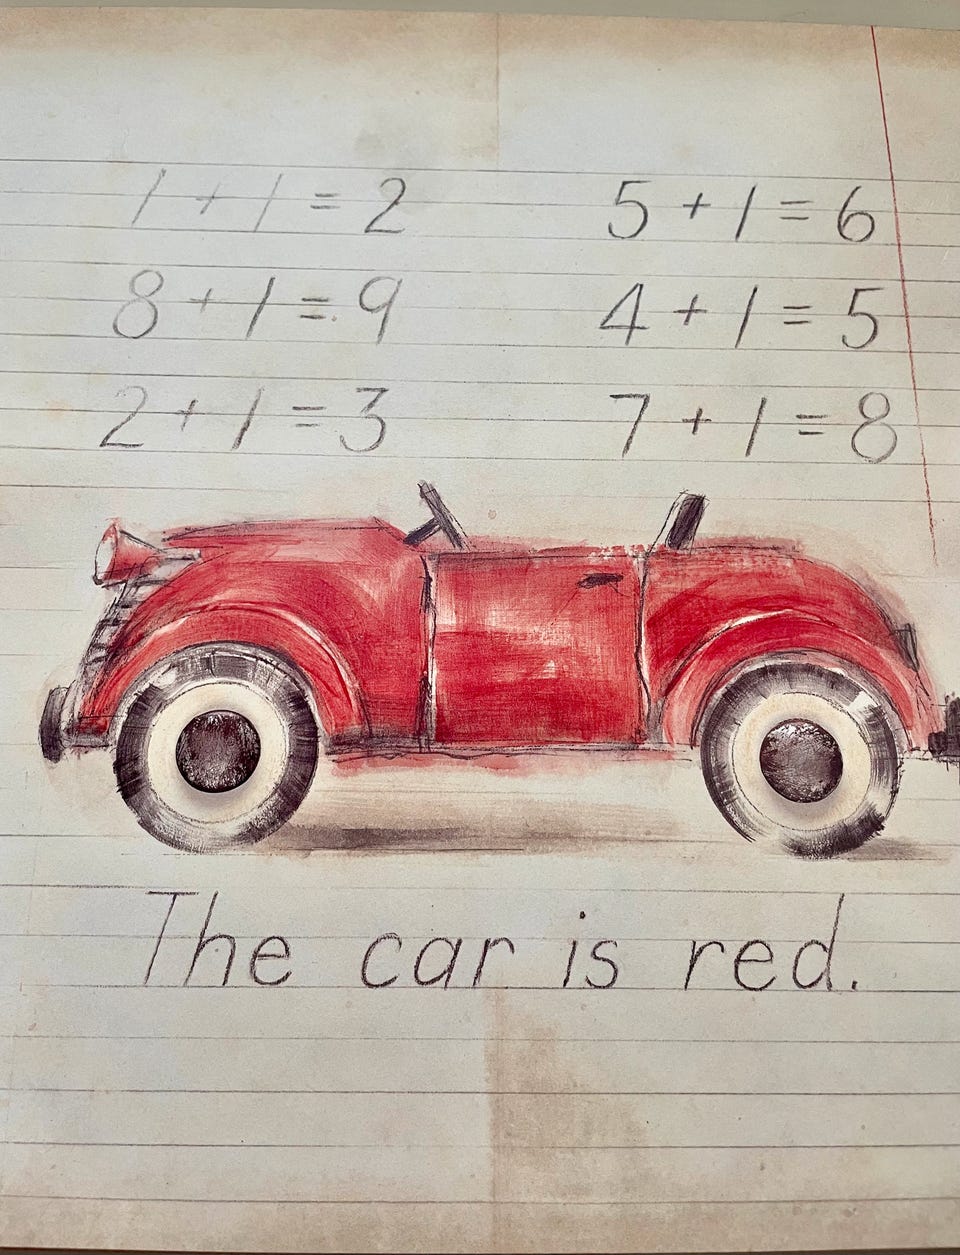 1 + 1 = 2 5 + 1 = 6
8 + 1 = 9 4 + 1 = 5
2 + 1 = 3 7 + 1 = 8
The car is red.